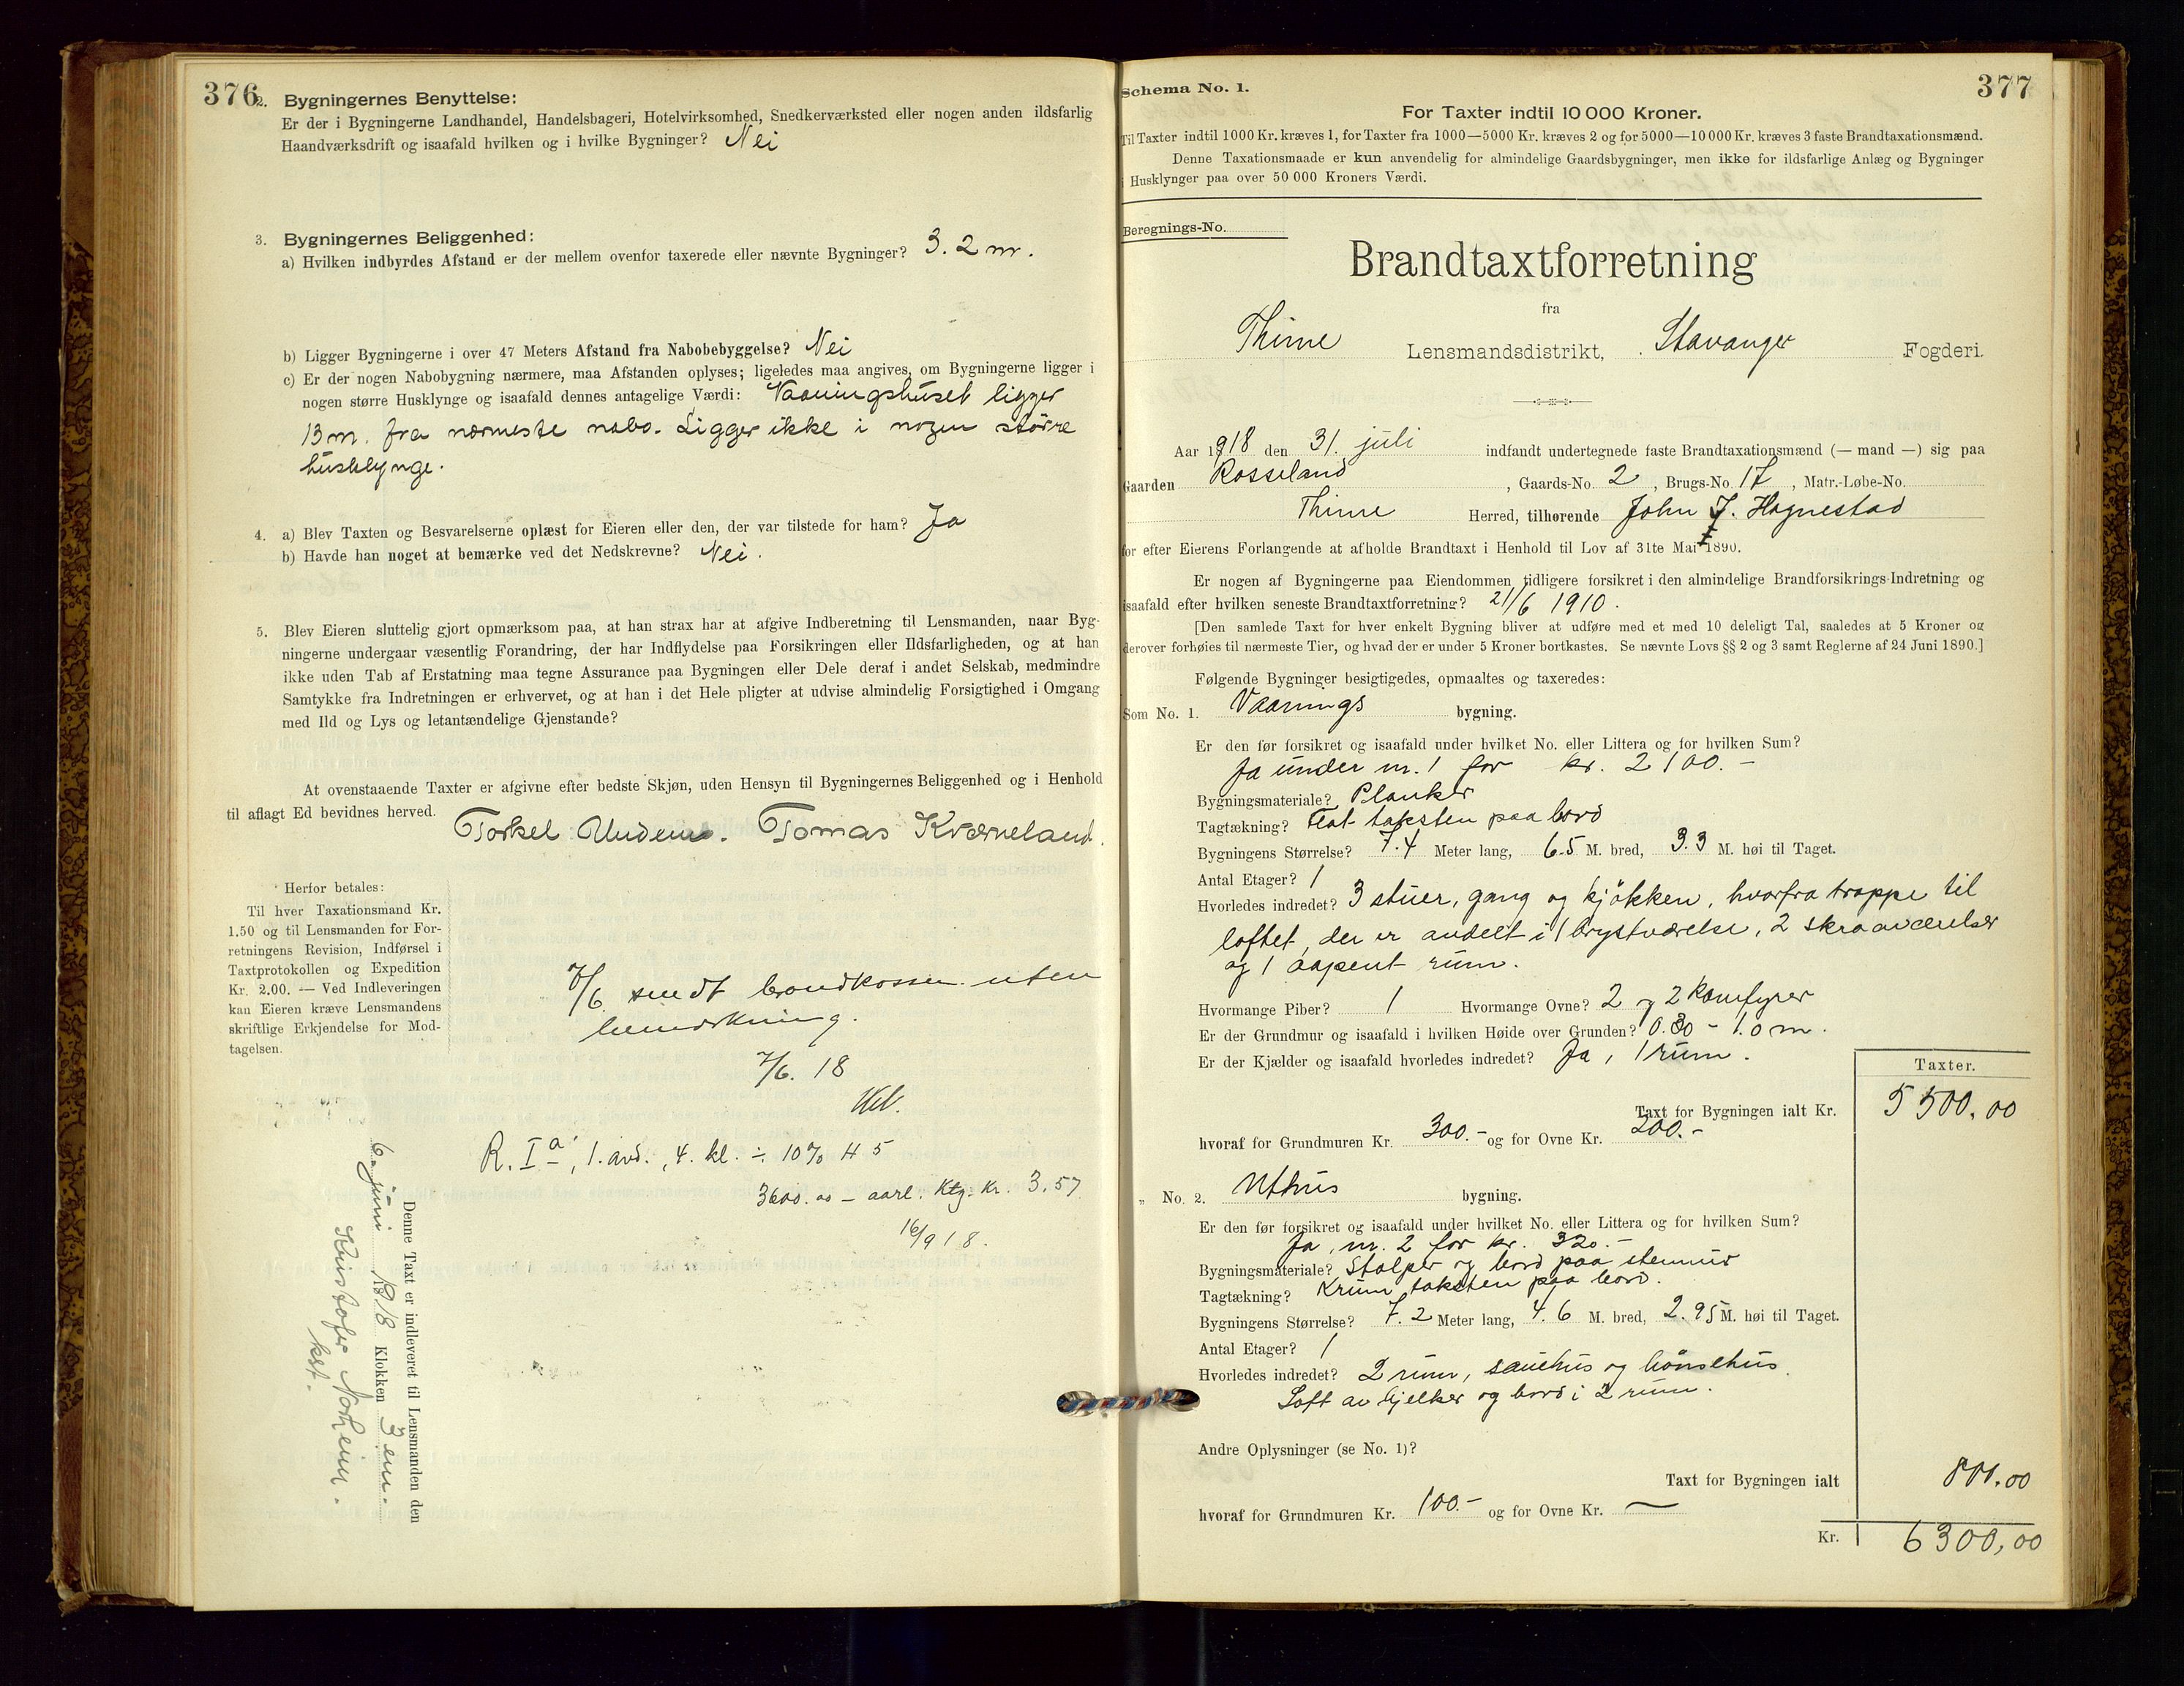 376
2. Bygningernes Benyttelse:
Er der i Bygningerne Landhandel, Handelsbageri, Hotelvirksomhed, Snedkerværksted eller nogen anden ildsfarlig
Haandværksdrift og isaafald hvilken og i hvilke Bygninger? Nei
3. Bygningernes Beliggenhed:
a) Hvilken indbyrdes Afstand er der mellem ovenfor taxerede eller nævnte Bygninger? 3.2 m.
b) Ligger Bygningerne i over 47 Meters Afstand fra Nabobebyggelse? Nei
c) Er der nogen Nabobygning nærmere, maa Afstanden oplyses; ligeledes maa angives, om Bygningerne ligger i
nogen større Husklynge og isaafald dennes antagelige Værdi: Vaaningshuset ligger
13 m. fra nærmeste nabo. Ligger ikke i nogen större
husklynge.
4. a) Blev Taxten og Besvarelserne oplæst for Eieren eller den, der var tilstede for ham? Ja
b) Havde han noget at bemærke ved det Nedskrevne? Nei.
5. Blev Eieren sluttelig gjort opmærksom paa, at han strax har at afgive Indberetning til Lensmanden, naar Byg-
ningerne undergaar væsentlig Forandring, der har Indflydelse paa Forsikringen eller Ildsfarligheden, og at han
ikke uden Tab af Erstatning maa tegne Assurance paa Bygningen eller Dele deraf i andet Selskab, medmindre
Samtykke fra Indretningen er erhvervet, og at han i det Hele pligter at udvise almindelig Forsigtighed i Omgang
med Ild og Lys og letantændelige Gjenstande?
At ovenstaaende Taxter er afgivne efter bedste Skjøn, uden Hensyn til Bygningernes Beliggenhed og i Henhold
til aflagt Ed bevidnes herved.
Torkel Undem. Tomas Kværneland.
Herfor betales:
Til hver Taxationsmand Kr.
1.50 og til Lensmanden for For-
retningens Revision, Indførsel i
Taxtprotokollen og Expedition
Kr. 2.00. — Ved Indleveringen
kan Eieren kræve Lensmandens
skriftlige Erkjendelse for Mod-
tagelsen.
7/6 sendt brandkassen uten
bemerkning.
7/6. 18
R. I a, 1. avd., 4. kl. ÷ 10% H 5
3600.00 – aarl. Ktg. Kr. 3.57
16/9 18.
Denne Taxt er indleveret til Lensmanden den
6. juni 1918 Klokken 3 em.
Kristofer Norheim.
kst.
377
Schema No. 1.
For Taxter indtil 10 000 Kroner.
Til Taxter indtil 1000 Kr. kræves 1, for Taxter fra 1000—5000 Kr. kræves 2 og for 5000—10 000 Kr. kræves 3 faste Brandtaxationsmænd.
Denne Taxationsmaade er kun anvendelig for almindelige Gaardsbygninger, men ikke for ildsfarlige Anlæg og Bygninger
i Husklynger paa over 50 000 Kroners Værdi.
Beregnings-No.
Brandtaxtforretning
fra
Thime Lensmandsdistrikt, Stavanger Fogderi.
Aar 1918 den 31. juli indfandt undertegnede faste Brandtaxationsmænd (— mand —) sig paa
Gaarden Rosseland, Gaards-No. 2, Brugs-No. 17, Matr.-Løbe-No.
Thime Herred, tilhørende John J. Hognestad
for efter Eierens Forlangende at afholde Brandtaxt i Henhold til Lov af 31te Mai 1890.
Er nogen af Bygningerne paa Eiendommen tidligere forsikret i den almindelige Brandforsikrings-Indretning og
isaafald efter hvilken seneste Brandtaxtforretning? 21/6 1910.
[Den samlede Taxt for hver enkelt Bygning bliver at udføre med et med 10 deleligt Tal, saaledes at 5 Kroner og
derover forhøies til nærmeste Tier, og hvad der er under 5 Kroner bortkastes. Se nævnte Lovs §§ 2 og 3 samt Reglerne af 24 Juni 1890.]
Følgende Bygninger besigtigedes, opmaaltes og taxeredes:
Som No. 1. Vaanings bygning.
Er den før forsikret og isaafald under hvilket No. eller Littera og for hvilken Sum?
Ja under nr. 1 for kr. 2100.–
Bygningsmateriale? Planker
Tagtækning? Flat taksten paa bord
Bygningens Størrelse? 7.4 Meter lang, 6.5 M. bred, 3.3 M. høi til Taget.
Antal Etager? 1
Hvorledes indredet? 3 stuer, gang og kjökken, hvorfra trappe til
loftet, der er avdelt i 1 brystværelse, 2 skraaværelser
og 1 aapent rum.
Hvormange Piber? 1 Hvormange Ovne? 2 og 2 komfyrer
Er der Grundmur og isaafald i hvilken Høide over Grunden? 0.30 – 1.0 m.
Er der Kjælder og isaafald hvorledes indredet? Ja, 1 rum.
Taxter.
Taxt for Bygningen ialt Kr. 5500.00
hvoraf for Grundmuren Kr. 300.– og for Ovne Kr. 200.–
„ No. 2. Uthus bygning.
Er den før forsikret og isaafald under hvilket No. eller Littera og for hvilken Sum?
Ja, nr. 2 for kr. 320.–
Bygningsmateriale? Stolper og bord paa stenmur
Tagtækning? Krum taksten paa bord.
Bygningens Størrelse? 7.2 Meter lang, 4.6 M. bred, 2.95 M. høi til Taget.
Antal Etager? 1
Hvorledes indredet? 2 rum, sauehus og hönsehus.
Loft av bjelker og bord i 2 rum.
Andre Oplysninger (se No. 1)?
Taxt for Bygningen ialt 800.00
hvoraf for Grundmuren Kr. 100.– og for Ovne Kr. —
Kr. 6300,00